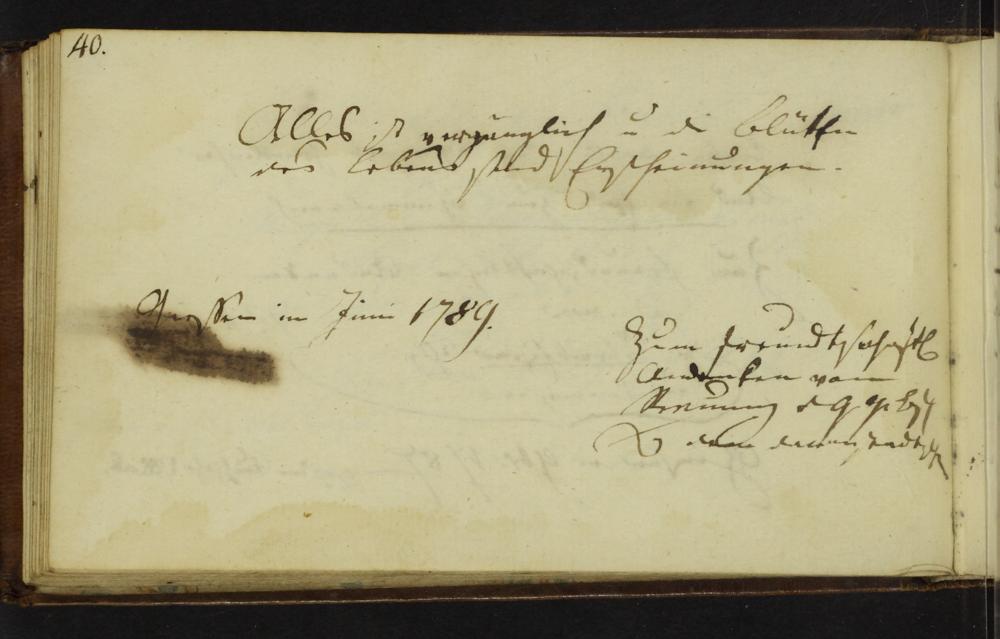 40.
Alles ist vergänglich u die blüthen
des lebens sind Erscheinungen.
Giessen im Juni 1789.
Zum freundschaftl
Andenken von